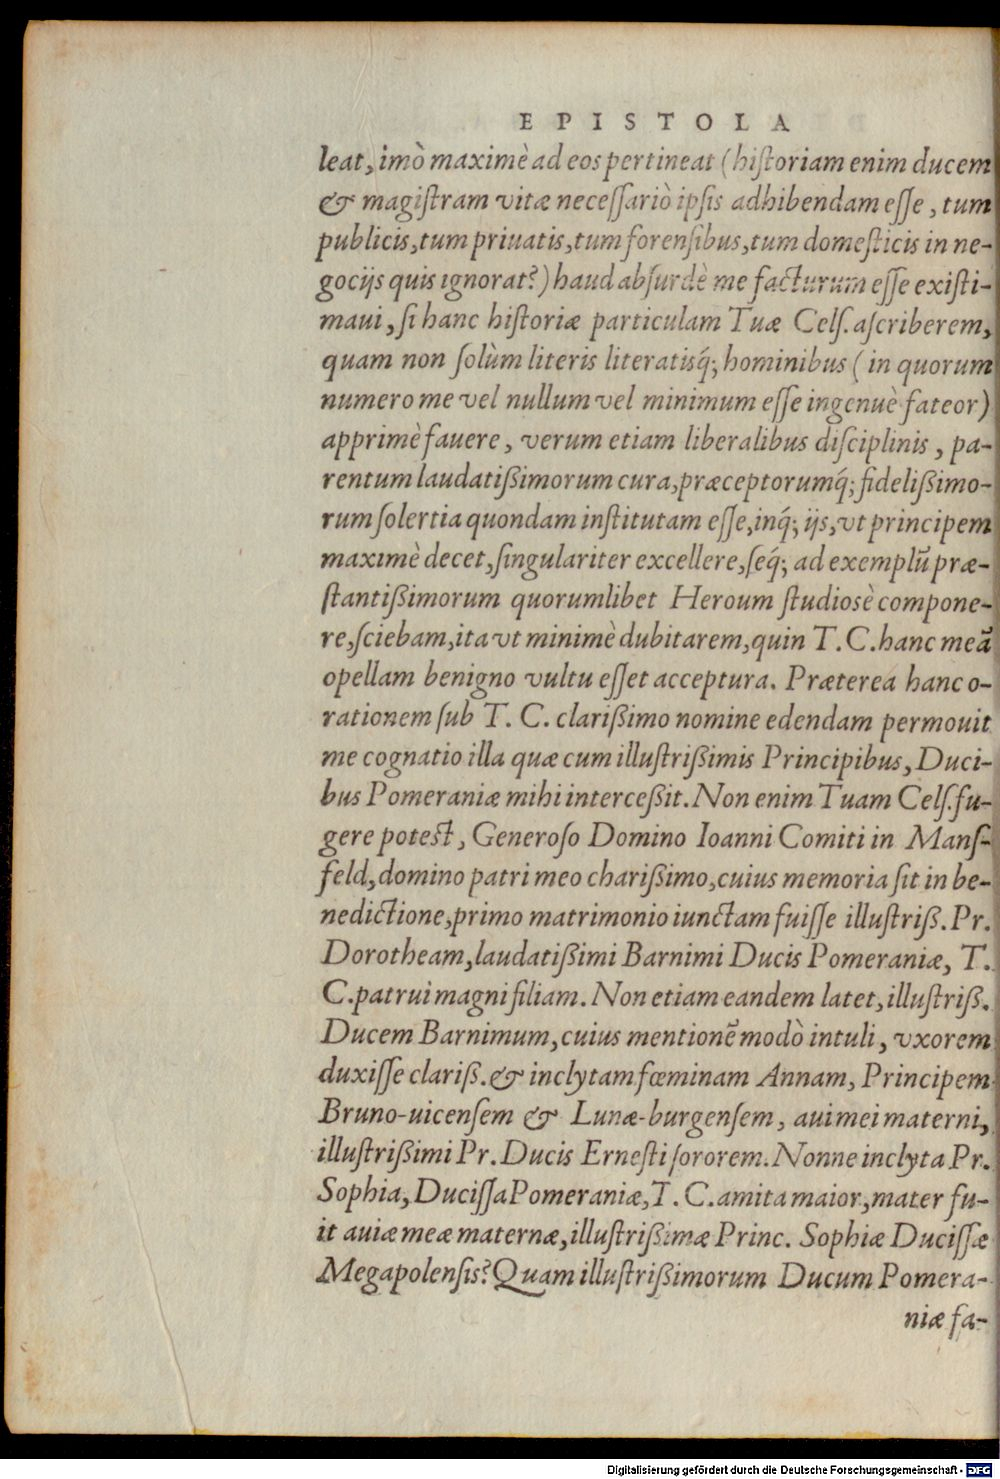 EPISTOLA
leat, imò maximè ad eos pertineat (hiſtoriam enim ducem
& magiſtram vitæ neceſſariò ipſis adhibendam eſſe, tum
publicis, tum priuatis, tum forenſibus, tum domeſticis in ne-
gocijs quis ignorat?) haud abſurdè me facturum eſſe exiſti-
maui, ſi hanc hiſtoriæ particulam Tuæ Celſ. aſcriberem,
quam non ſolùm literis literatisq́; hominibus (in quorum
numero me vel nullum vel minimum eſſe ingenuè fateor)
apprimè fauere, verum etiam liberalibus diſciplinis, pa-
rentum laudatißimorum cura, præceptorumq́; fidelißimo-
rum ſolertia quondam inſtitutam eſſe, inq́; ijs, vt principem
maximè decet, ſingulariter excellere, ſeq́; ad exemplũ præ-
ſtantißimorum quorumlibet Heroum ſtudiosè compone-
re, ſciebam, ita vt minimè dubitarem, quin T. C. hanc meã
opellam benigno vultu eſſet acceptura. Præterea hanc o-
rationem ſub T. C. clarißimo nomine edendam permouit
me cognatio illa quæ cum illuſtrißimis Principibus, Duci-
bus Pomeraniæ mihi interceßit. Non enim Tuam Celſ. fu-
gere poteſt, Generoſo Domino Ioanni Comiti in Manſ-
feld, domino patri meo charißimo, cuius memoria ſit in be-
nedictione, primo matrimonio iunctam fuiſſe illuſtriß. Pr.
Dorotheam, laudatißimi Barnimi Ducis Pomeraniæ, T.
C. patrui magni filiam. Non etiam eandem latet, illuſtriß.
Ducem Barnimum, cuius mentionẽ modò intuli, vxorem
duxiſſe clariß. & inclytam fœminam Annam, Principem
Bruno-uicenſem & Lunæ-burgenſem, aui mei materni,
illuſtrißimi Pr. Ducis Erneſti ſororem. Nonne inclyta Pr.
Sophia, Duciſſa Pomeraniæ, T. C. amita maior, mater fu-
it auiæ meæ maternæ, illuſtrißimæ Princ. Sophiæ Duciſſæ
Megapolenſis? Quam illuſtrißimorum Ducum Pomera-
niæ fa-
Digitalisierung gefördert durch die Deutsche Forschungsgemeinschaft - DFG